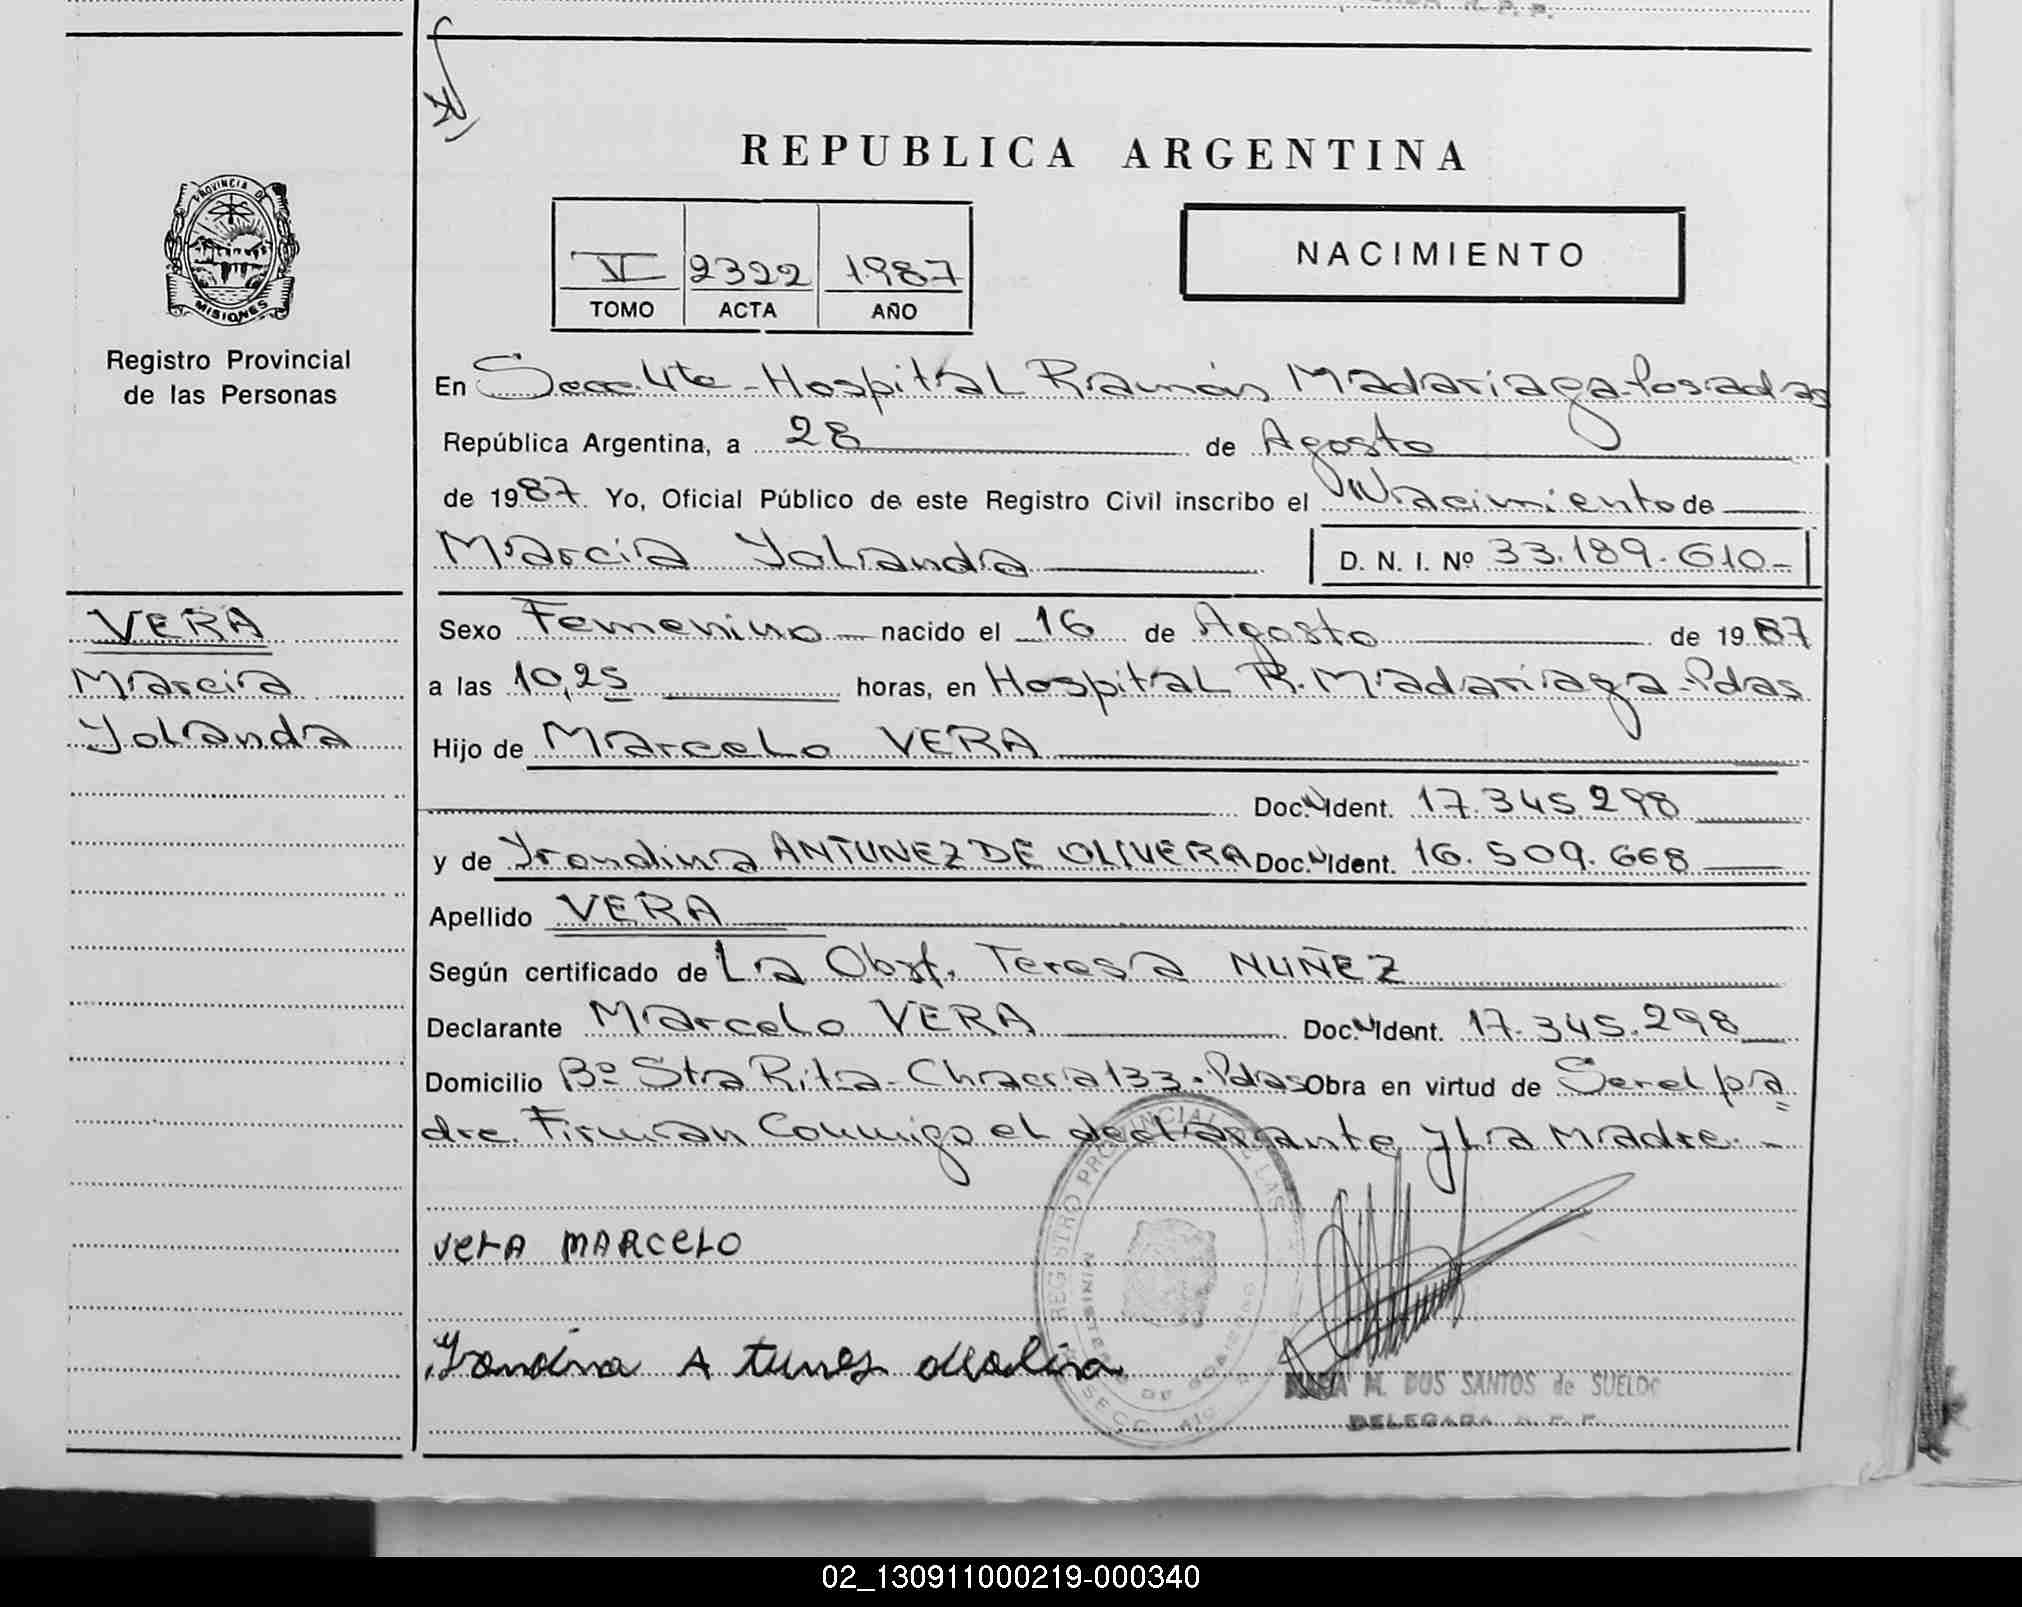 REPUBLICA ARGENTINA
PROVINCIA DE
MISIONES
Registro Provincial
de las Personas
V 2322 1987
TOMO ACTA AÑO
NACIMIENTO
En Secc. 4ta - Hospital Ramón Madariaga - Posadas
República Argentina, a 28 de Agosto
de 1987. Yo, Oficial Público de este Registro Civil inscribo el Nacimiento de
Marcia Yolanda D. N. I. Nº 33.189.610-
VERA
Marcia
Yolanda
Sexo Femenino nacido el 16 de Agosto de 1987
a las 10,25 horas, en Hospital R. Madariaga - Pdas.
Hijo de Marcelo VERA
Doc. N Ident. 17.345.298
y de Irondina ANTUNEZ DE OLIVERA Doc. N Ident. 16.509.668
Apellido VERA
Según certificado de La Obst. Teresa NUÑEZ
Declarante Marcelo VERA Doc. N Ident. 17.345.298
Domicilio Bº Sta Rita - Chacra 133 - Pdas Obra en virtud de Ser el pa
dre. Firman Conmigo el declarante y La Madre. -
VerA MARCeLO
A tunes
REGISTRO PROVINCIAL DE LAS
MINISTERIO DE GOBIERNO
SECC.
M. DOS SANTOS de SUELDO
DELEGADA R. P. P.
02_130911000219-000340